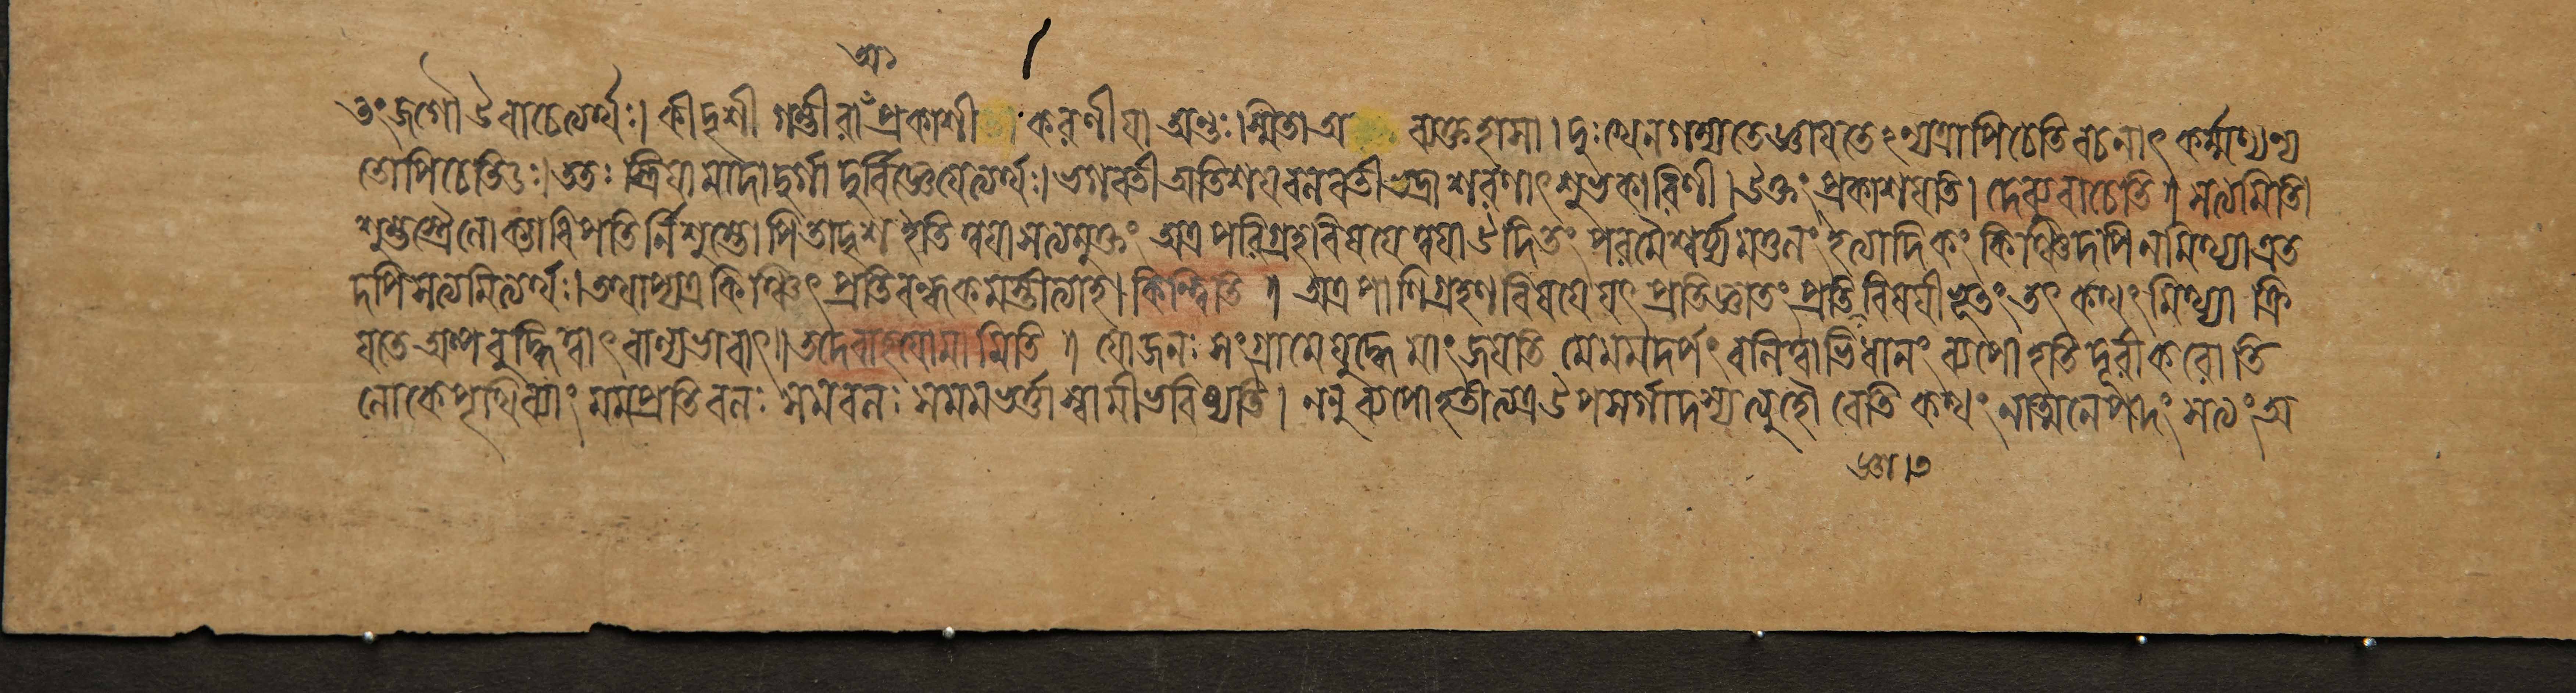 তং জগৌ উবাচেত্যর্থঃ। কীদৃশী গম্ভীরা প্রকাশী করণীয়া অন্তঃস্মিতা অ ব্যক্তহাসা। দুঃখেন গম্যতে জ্ঞায়তেঽন্যত্রাপি চেতি বচনাৎ কর্ম্মণ্যন্য
তোপি চেতি ডঃ। ততঃ স্ত্রিয়ামাদা দুর্গা দুর্বিজ্ঞেয়েত্যর্থঃ। ভগবতী অতিশয়বলবতী ভদ্রা শরণাৎ শুভকারিণী। উক্তং প্রকাশয়তি। দেব্যুবাচেতি॥ সত্যমিতি।
শুম্ভস্ত্রৈলোক্যাধিপতির্নিশুম্ভোপি তাদৃশ ইতি ত্বয়া সত্যমুক্তং অত্র পরিগ্রহবিষয়ে ত্বয়া উদিতং পরমৈশ্বর্য্যমতুলং ইত্যাদিকং কিঞ্চিদপি ন মিথ্যা এত
দপি সত্যমিত্যর্থঃ। তথাপ্যত্র কিঞ্চিৎ প্রতিবন্ধকমস্তীত্যাহ। কিন্ত্বিতি॥ অত্র পাণিগ্রহণবিষয়ে যৎ প্রতিজ্ঞাতং প্রতি বিষয়ীভূতং তৎ কথং মিথ্যা ক্রি
য়তে অল্পবুদ্ধিত্বাৎ বাল্যভাবাৎ॥ তদেবাহ যো মামিতি॥ যো জনঃ সংগ্রামে যুদ্ধে মাং জয়তি মে মম দর্পং বলিত্বাভিধানং ব্যপোহতি দূরীকরোতি
লোকে পৃথিব্যাং মম প্রতিবলঃ সমবলঃ স মম ভর্ত্তা স্বামী ভবিষ্যতি। ননু ব্যপোহতীত্যত্র উপসর্গাদস্যত্যূহ্যো র্বেতি কথং নাত্মনেপদং সত্যং অ